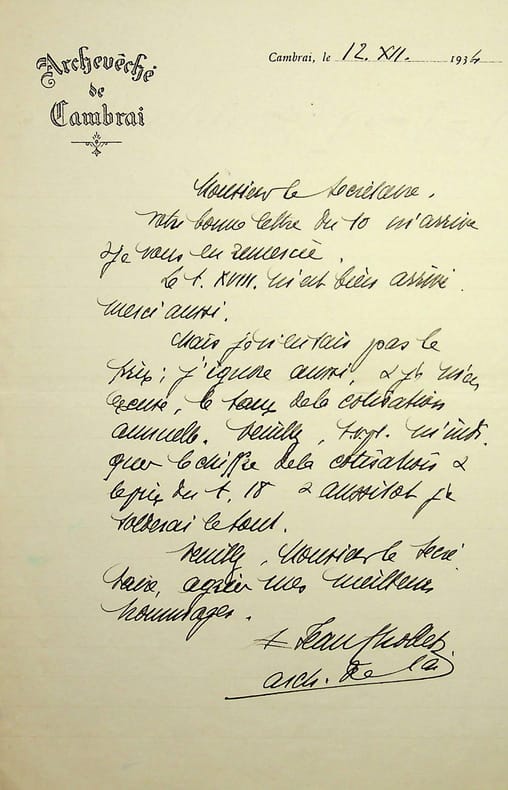 Archevêché
de
Cambrai
Cambrai, le 12. XII. 1934
Monsieur le Secrétaire,
Votre bonne lettre du 10 m'arrive
& je vous en remercie.
Le t. XVIII. m'est bien arrivé.
merci aussi.
Mais je n'en sais pas le
prix ; j'ignore aussi, & je m'en
excuse, le taux de la cotisation
annuelle. Veuillez, s.v.pl. m'indi-
quer le chiffre de la cotisation &
le prix du t. 18 & aussitôt je
solderai le tout.
Veuillez, Monsieur le Secré-
taire, agréer mes meilleurs
hommages.
+ Jean Chollet
arch. de